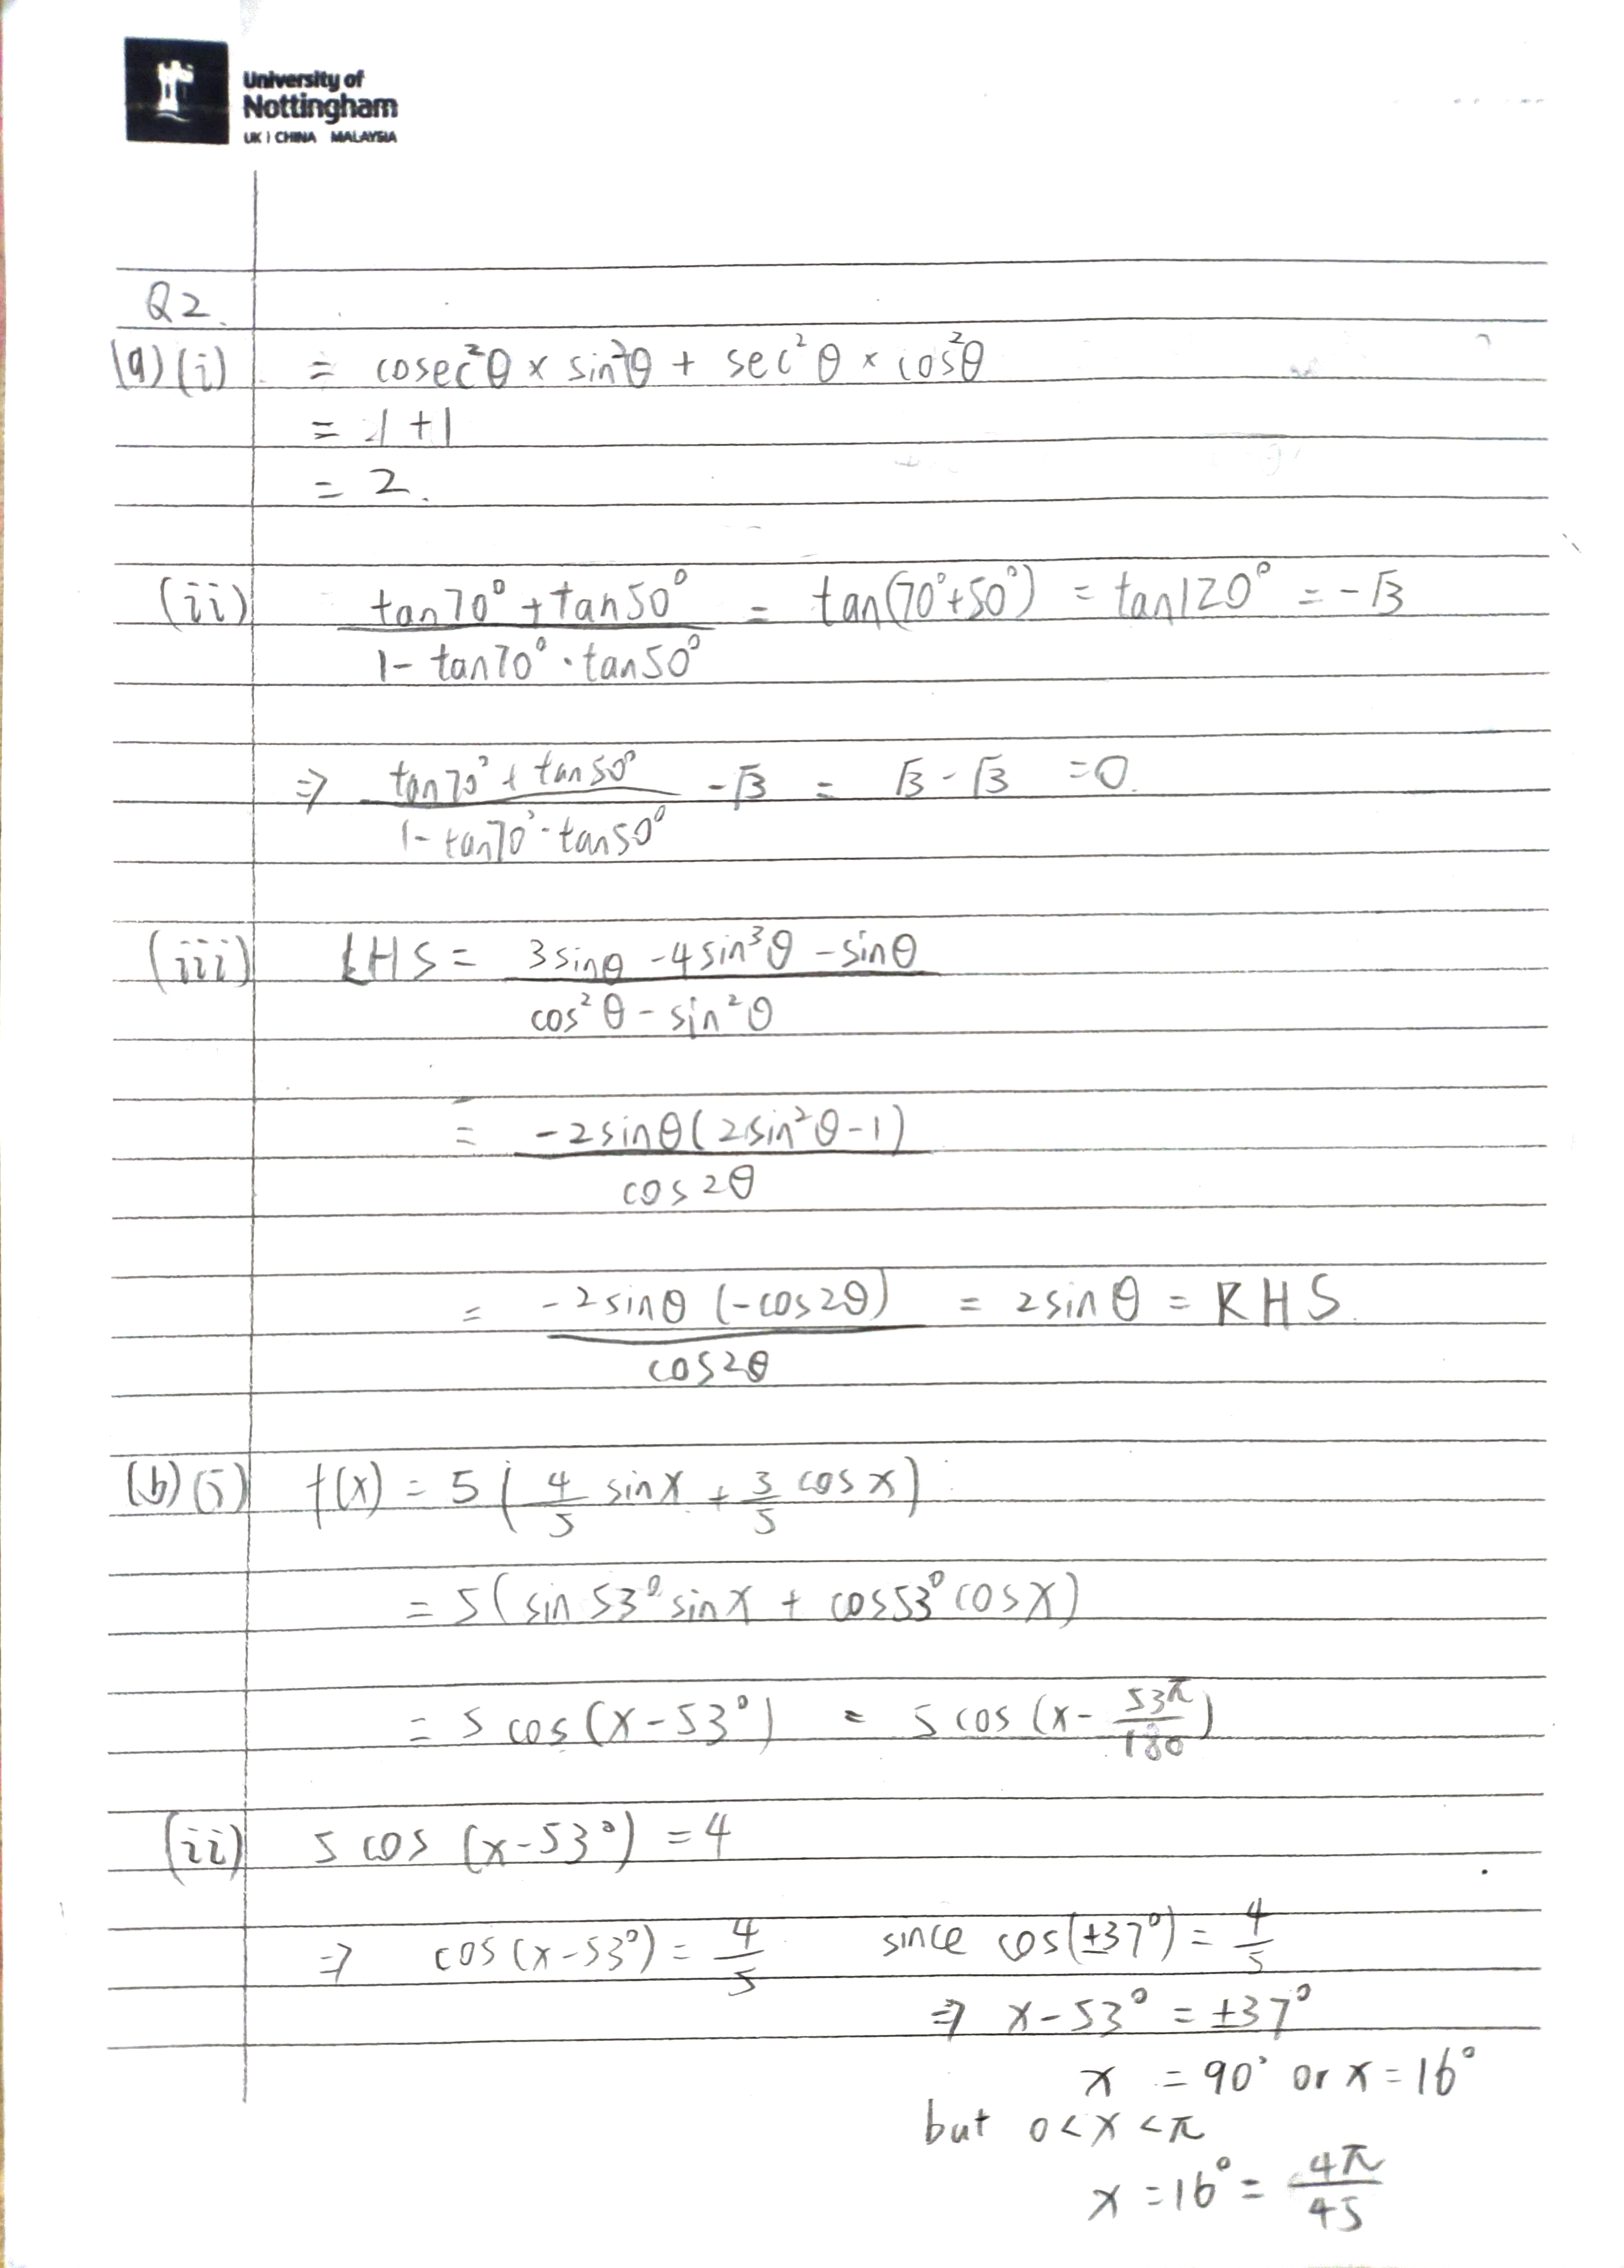 University of
Nottingham
UK | CHINA MALAYSIA
Q2.
(a) (i) = cosec²θ × sin²θ + sec²θ × cos²θ
= 1 + 1
= 2.
(ii) (tan70° + tan50°) / (1 - tan70° · tan50°) = tan(70°+50°) = tan120° = -√3
⇒ (tan70° + tan50°) / (1 - tan70° · tan50°) - √3 = √3 - √3 = 0.
(iii) LHS = (3sinθ - 4sin³θ - sinθ) / (cos²θ - sin²θ)
= -2sinθ(2sin²θ-1) / cos2θ
= -2sinθ(-cos2θ) / cos2θ = 2sinθ = RHS.
(b) (i) f(x) = 5(4/5 sinx + 3/5 cosx)
= 5(sin53°sinx + cos53°cosx)
= 5 cos(x-53°) = 5 cos(x - 53π/180)
(ii) 5 cos (x-53°) = 4
⇒ cos(x-53°) = 4/5 since cos(±37°) = 4/5
⇒ x-53° = ±37°
x = 90° or x = 16°
but 0<x<π
x = 16° = 4π/45